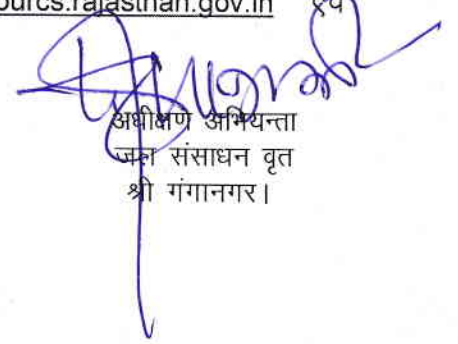 ourcs.rajasthan.gov.in
अधीक्षण अभियन्ता
जल संसाधन वृत
श्री गंगानगर।